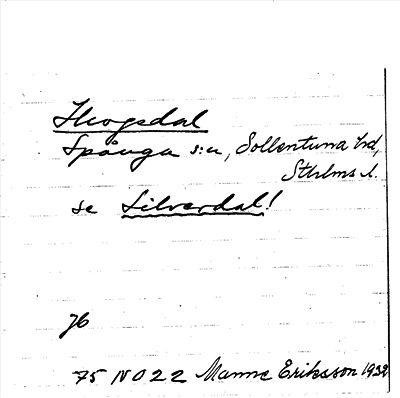 Skogsdal
Spånga s:n, Sollentuna hd,
Sthlms l.
se Silverdal!
76
75 NO 22 Manne Eriksson 1932